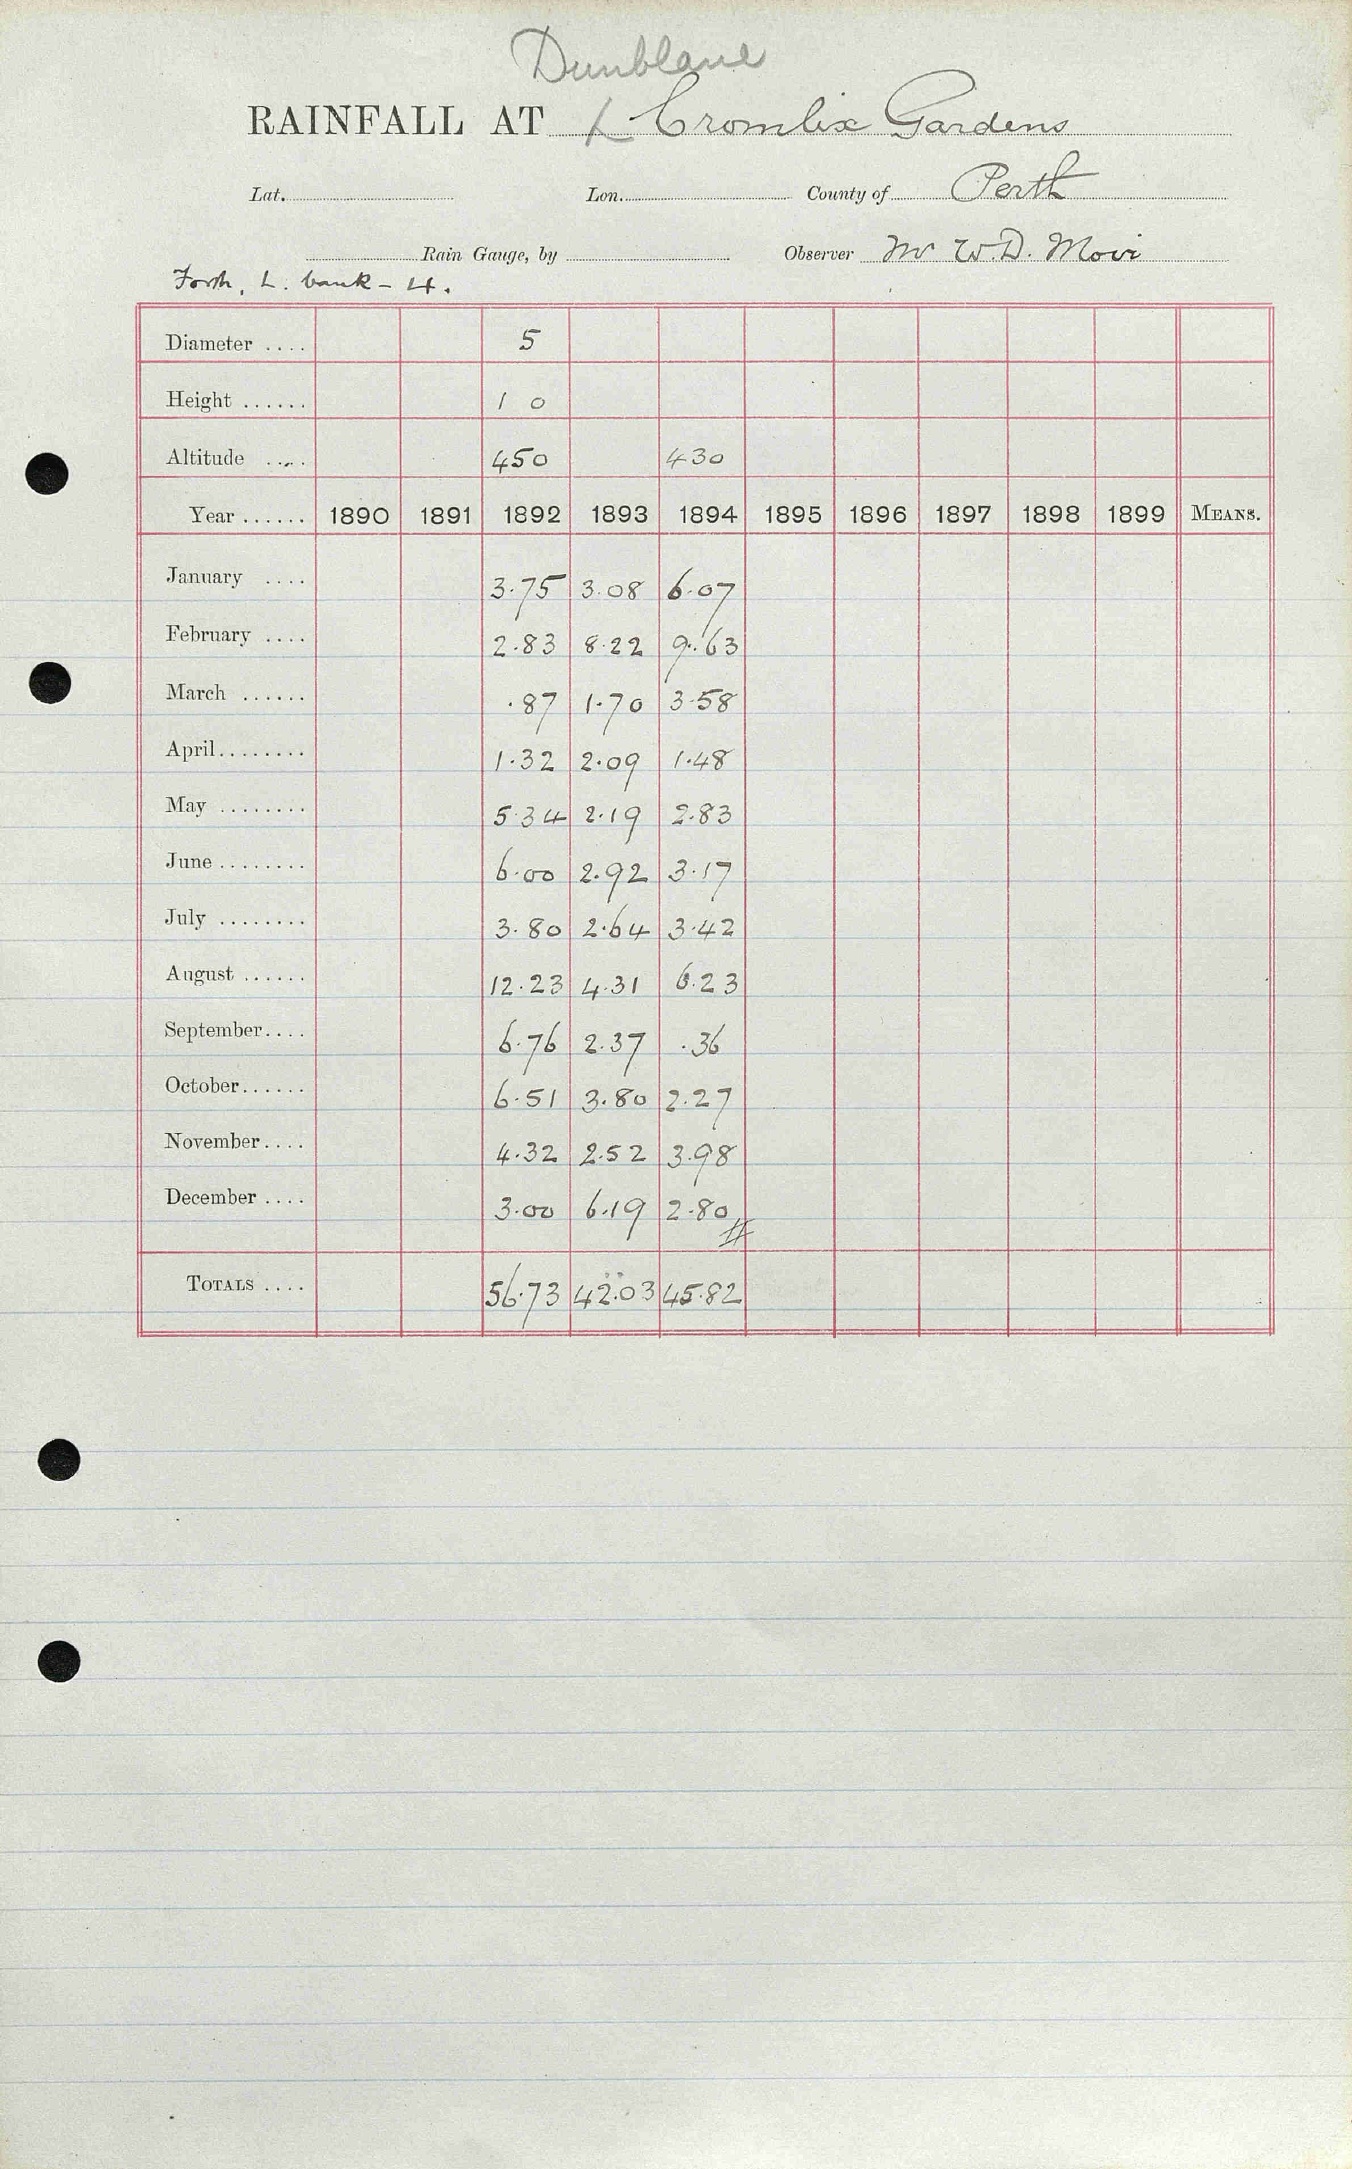 Dunblane
RAINFALL AT Cromlix Gardens
Lat. Lon. County of Perth
Rain Gauge, by Observer Mr W.D. Movi
Forth, L. bank - 4.
Diameter .... 5
Height ...... 1 0
Altitude .... 450 430
Year ...... 1890 1891 1892 1893 1894 1895 1896 1897 1898 1899 MEANS.
January .... 3.75 3.08 6.07
February .... 2.83 8.22 9.63
March ...... .87 1.70 3.58
April........ 1.32 2.09 1.48
May ........ 5.34 2.19 2.83
June ........ 6.00 2.92 3.17
July ........ 3.80 2.64 3.42
August ...... 12.23 4.31 6.23
September.... 6.76 2.37 .36
October...... 6.51 3.80 2.27
November.... 4.32 2.52 3.98
December .... 3.00 6.19 2.80
TOTALS .... 56.73 42.03 45.82